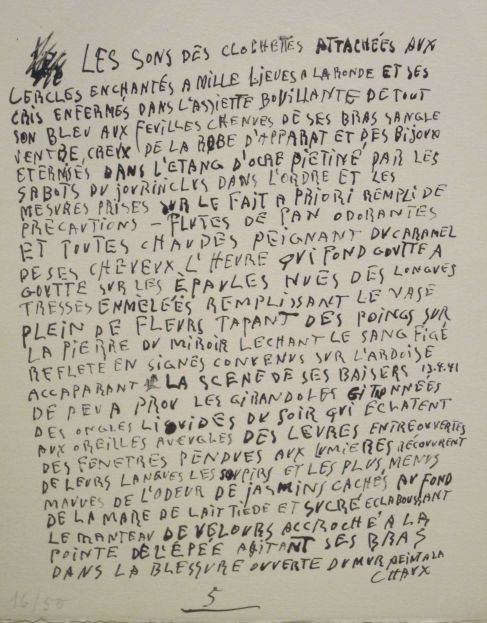 LES SONS DES CLOCHETTES ATTACHÉES AUX
CERCLES ENCHANTÉS A MILLE LIEUES A LA RONDE ET SES
CRIS ENFERMÉS DANS L'ASSIETTE BOUILLANTE DE TOUT
SON BLEU AUX FEUILLES CHENUES DE SES BRAS SANGLE
VENTRE CREUX DE LA ROBE D'APPARAT ET DES BIJOUX
ETERNISÉS DANS L'ETANG D'OCRE PIETINÉ PAR LES
SABOTS DU JOUR INCLUS DANS L'ORDRE ET LES
MESURES PRISES SUR LE FAIT A PRIORI REMPLI DE
PRÉCAUTIONS – FLUTES DE PAN ODORANTES
ET TOUTES CHAUDES PEIGNANT DU CARAMEL
DE SES CHEVEUX L'HEURE QUI FOND GOUTTE A
GOUTTE SUR LES ÈPAULES NUES DES LONGUES
TRESSES EMMELÉES REMPLISSANT LE VASE
PLEIN DE FLEURS TAPANT DES POINGS SUR
LA PIERRE DU MIROIR LECHANT LE SANG FIGÉ
REFLETÉ EN SIGNES CONVENUS SUR L'ARDOISE
ACCAPARANT LA SCENE DE SES BAISERS 13.9.41
DE PEU A PROU LES GIRANDOLES
DES ONGLES LIQUIDES DU SOIR QUI ÉCLATENT
AUX OREILLES AVEUGLES DES LEVRES ENTREOUVERTES
DES FENETRES PENDUES AUX LUMIERES RECOUVRENT
DE LEURS LANGUES LES SOUPIRS ET LES PLUS MENUS
MAUVES DE L'ODEUR DE JASMINS CACHÉS AU FOND
DE LA MARE DE LAIT TIEDE ET SUCRÉ ECLABOUSSANT
LE MANTEAU DE VELOURS ACCROCHÉ A LA
POINTE DE L'ÉPÉE AGITANT SES BRAS
DANS LA BLESSURE OUVERTE DU MUR PEINT A LA
CHAUX
16/50
5